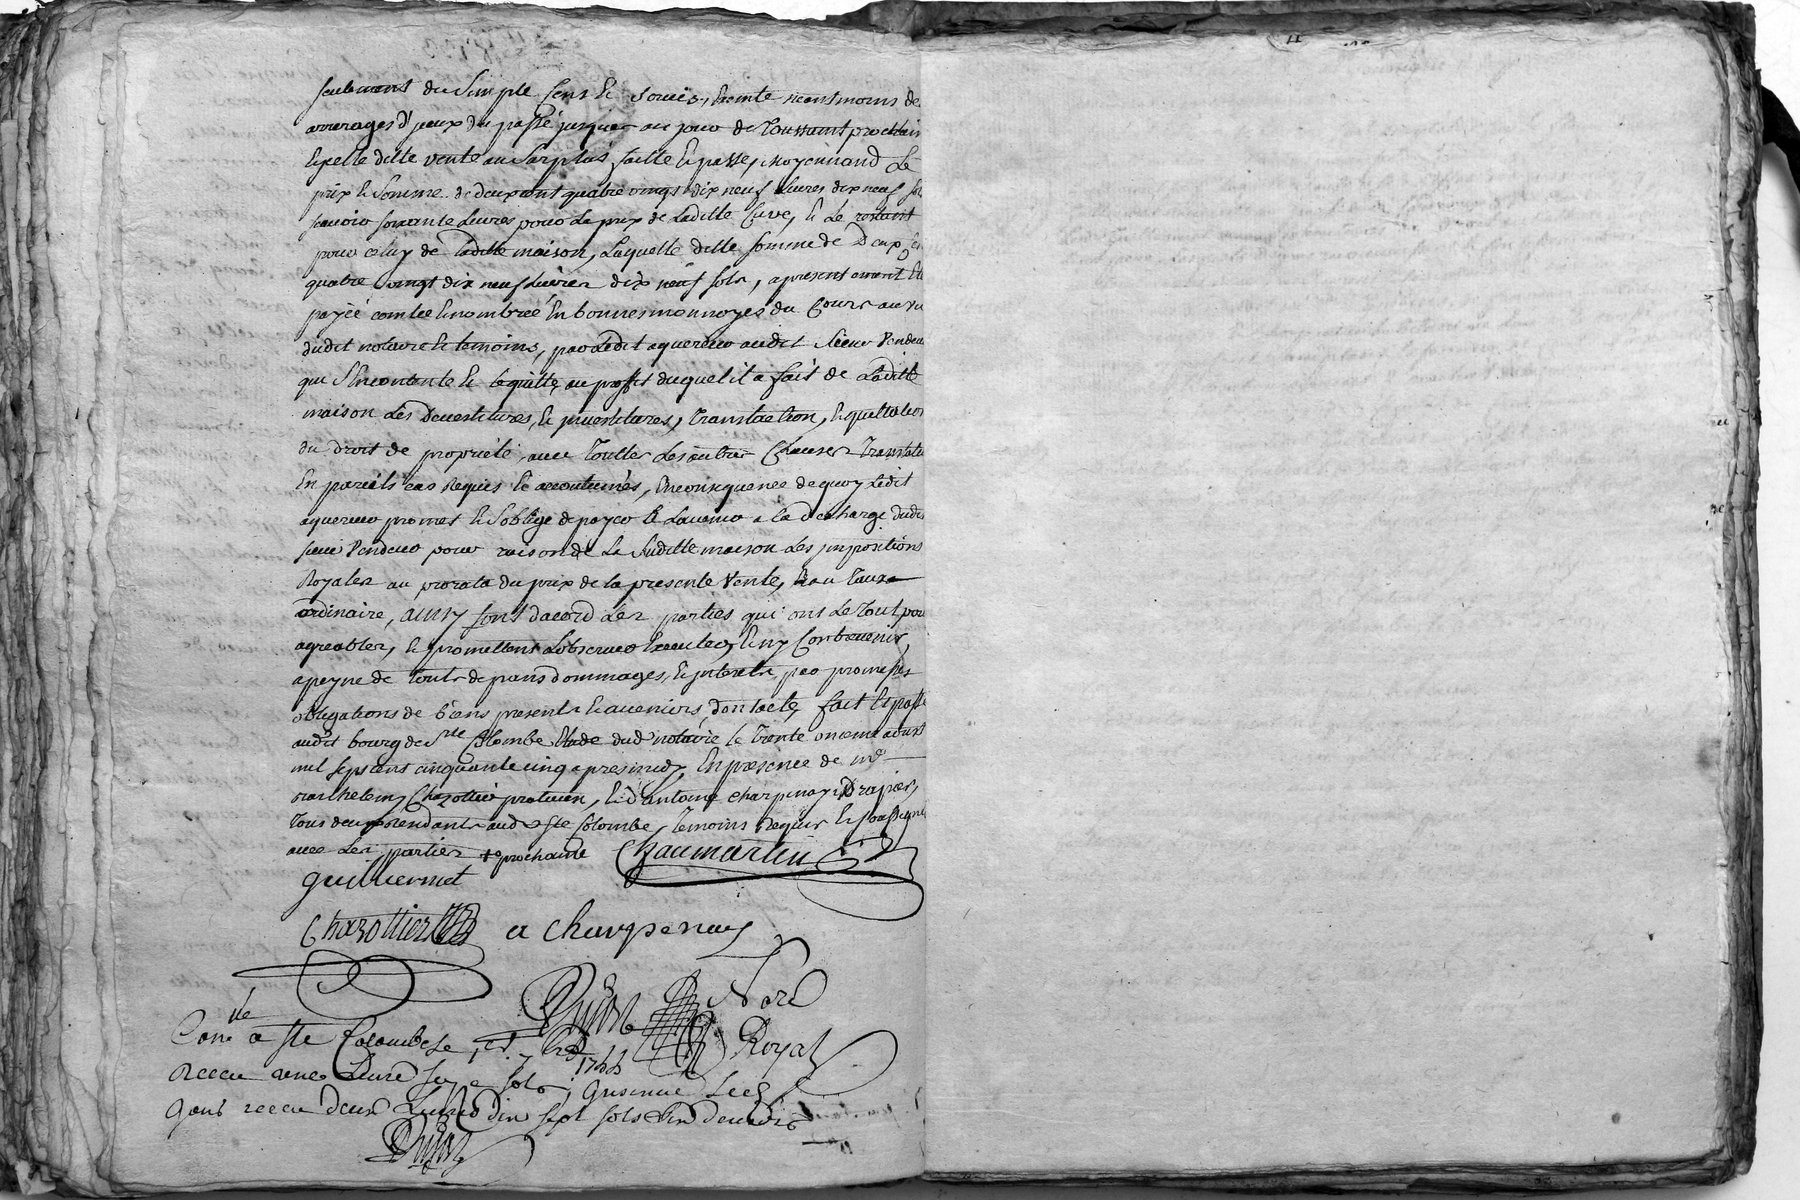 seulement du simple sens & servis, exempte neantmoins de
arrerages d'yceux du passé jusques au jour de Toussaint prochain
icelle ditte vente au surplus faitte & passée, moyennand Le
prix & somme de deux cent quatre vingt dix neuf Livres dix neuf sols
scavoir soixante Livres pour Le prix de Laditte Cuve, & Le restant
pour celuy de Laditte maison, Laquelle ditte somme de Deux Cent
quatre vingt dix neuf Livres dix neuf sols, a presentement Eté
payée comtée & nombrée En bonnes monnoyes du Cours au vu
dudit notaire & temoins, par Ledit aquereur audit Sieur Vendeur
qui s'En contente & le quitte, au proffit duquel il a fait de Laditte
maison Les Devestitures, & investitures, translaction, & quittation
du droit de proprieté, avec Touttes Les autres Clauses Translatives
En pareils cas Requis & accoutumés, En consequence de quoy Ledit
aquereur promet & s'oblige de payer & Lavenir a la décharge dudit
sieur Vendeur pour raison de La suditte maison Les jmpositions
Royales au prorata du prix de la presente Vente, & au Taux
ordinaire, ainsy sont d'acord Les parties qui ont Le Tout pour
agreables, & promettent L'observer Executer, & ny Contrevenir,
a peyne de touts depans dommages, & jnterets, par promesses
obligations de biens presents & avenirs, dont acte, fait & passé
audit bourg de Ste Colombe Etude dud notaire le Trente onzieme
mil sept cent cinquante cinq apres midy, En presence de me
Barthelemy Chazottier praticien, & d'antoine charpenay Drapier,
tous deux residants aud Ste Colombe, Temoins Requis & soussignés
avec Les parties prochaine Chaumartin
guillermet
Chazottier a charpenay
Nore
Royal
Conlle a ste Colombe, 1755
Receu une Livre seze sols,
receu deux Livres dix sept sols